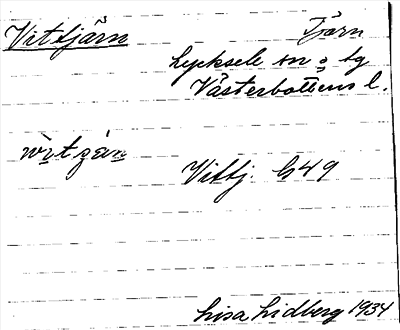 Vittjärn Tjärn
Lycksele sn o tg
Västerbottens l.
Vittj. G49
Lisa Lidberg 1934